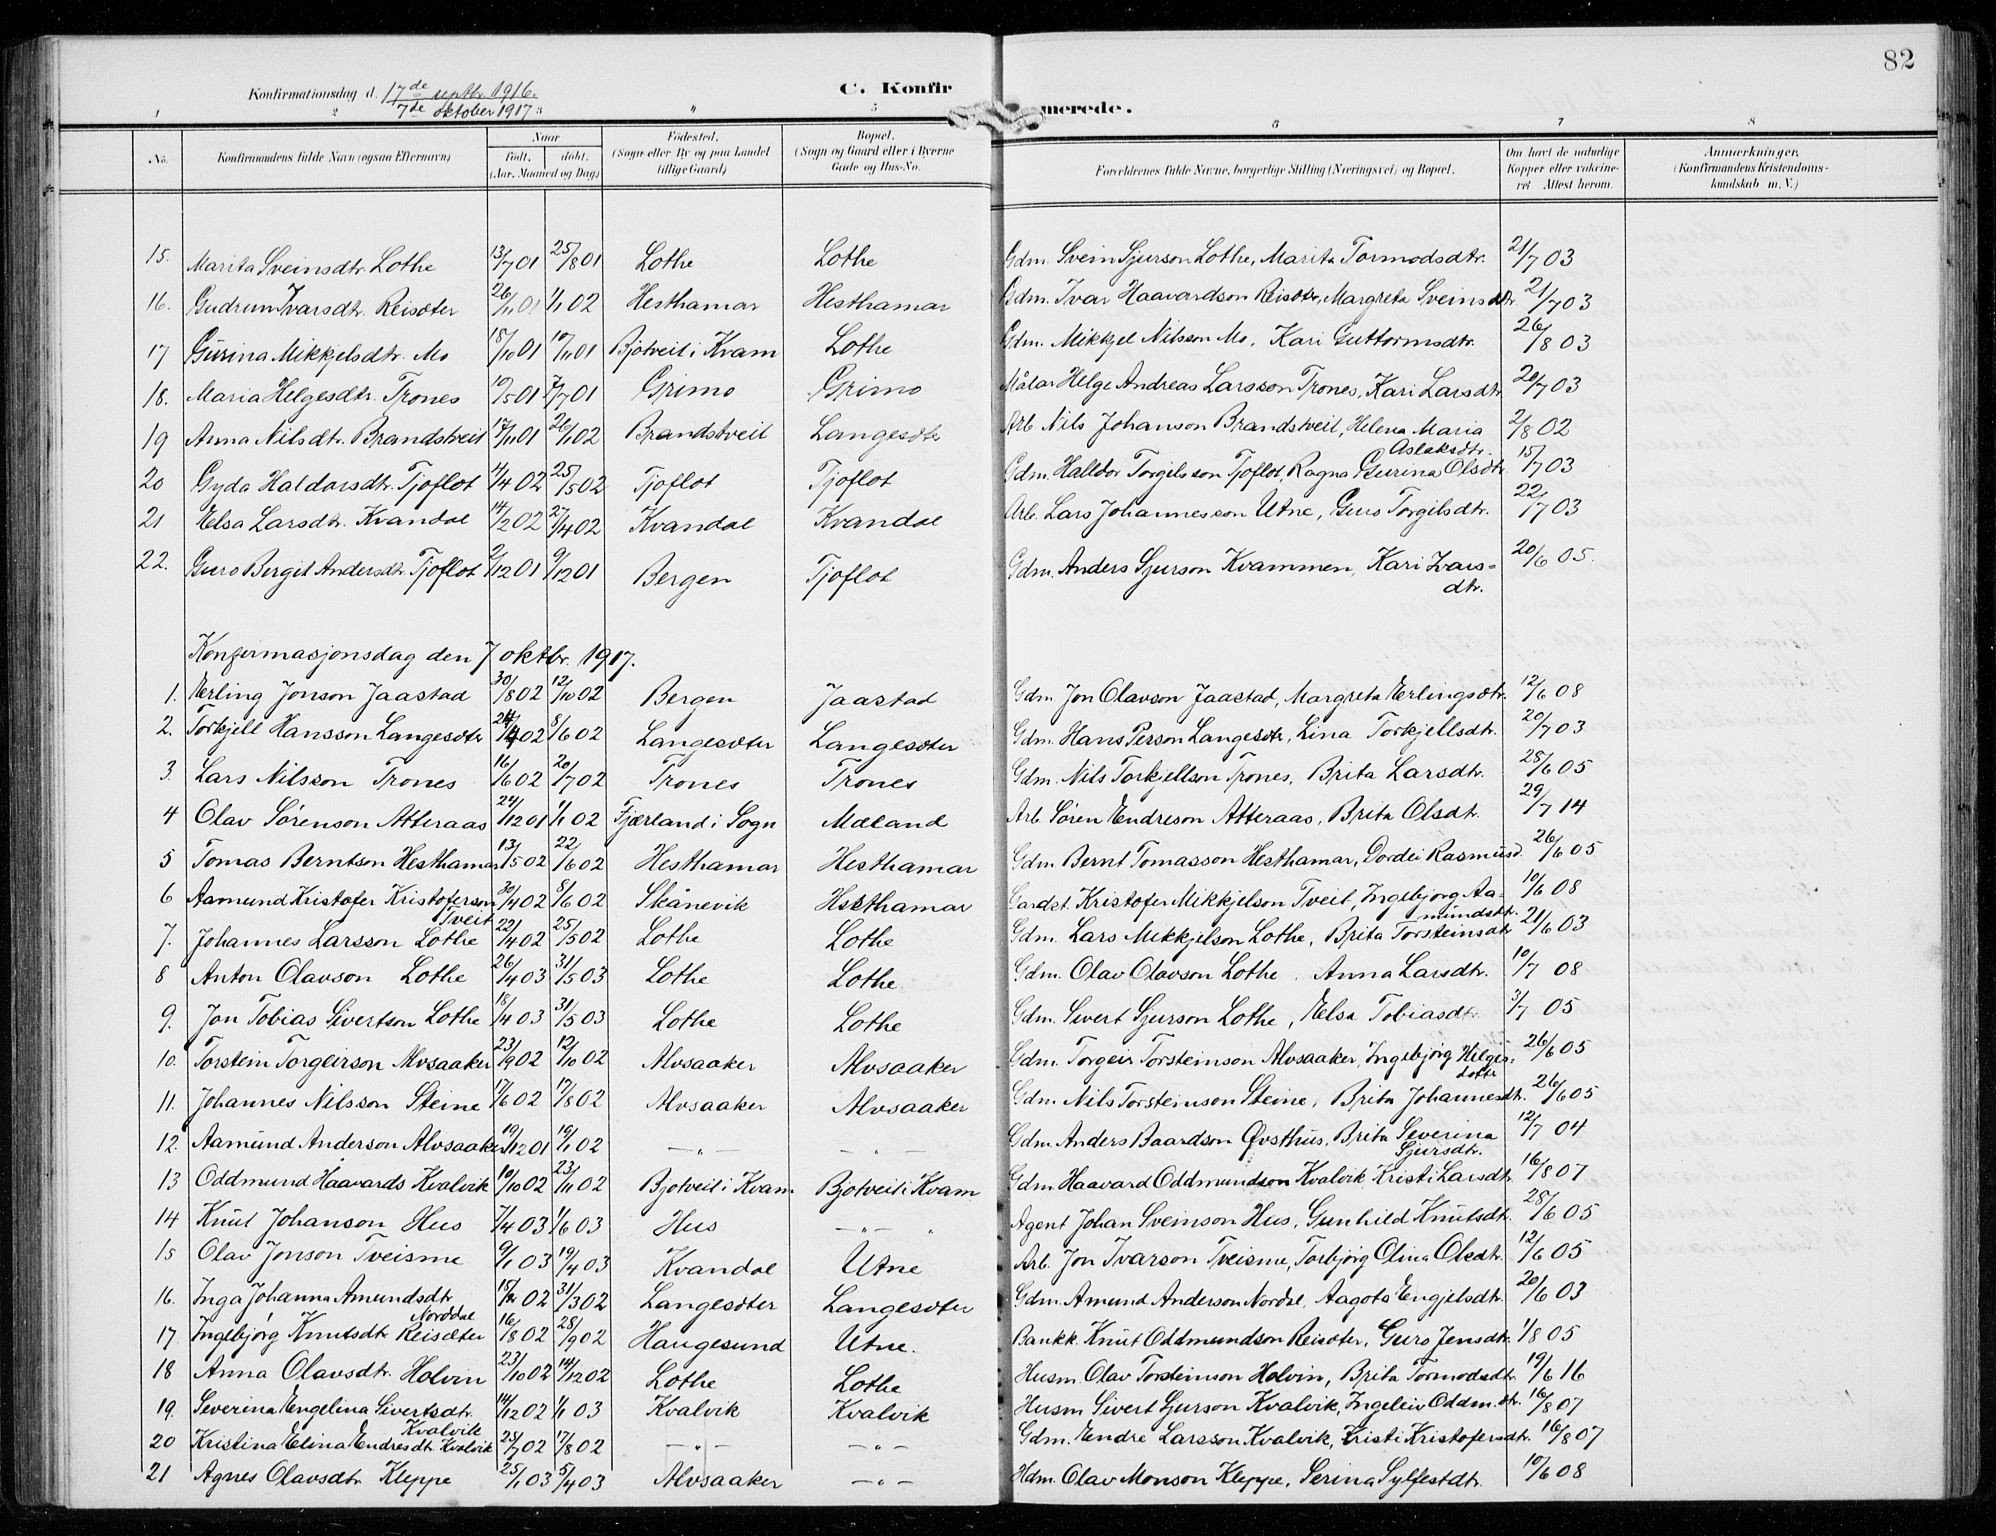 82
Konfirmationsdag d. 17de septbr. 1916.
7de oktober 1917
C. Konfirmerede.
1 2 3 4 5 6 7 8
No. Konfirmandens fulde Navn (ogsaa Efternavn) Naar født. døbt. (Aar, Maaned og Dag) Fødested. (Sogn eller By og paa Landet tillige Gaard) Bopæl. (Sogn og Gaard eller i Byerne Gade og Hus-No. Forældrenes fulde Navne, borgerlige Stilling (Næringsvei) og Bopæl. Om havt de naturlige Kopper eller vakcineret. Attest herom. Anmærkninger. (Konfirmandens Kristendomskundskab m. V.)
15. Marita Sveinsdtr. Lothe 13/7 01 25/8 01 Lothe Lothe Gdm. Svein Sjurson Lothe, Marita Tormodsdtr. 21/7 03
16. Gudrun Ivarsdtr. Reisæter 26/11 01 1/1 02 Hesthamar Hesthamar Gdm. Ivar Haavardson Reisæter, Margreta Sveinsdtr. 21/7 03
17 Gurina Mikkjelsdtr. Mo 18/10 01 17/11 01 Bjotveit i Kvam Lothe Gdm. Mikkjel Nilsson Mo, Kari Guttormsdtr. 26/8 03
18. Maria Helgesdtr. Trones 19/5 01 7/7 01 Grimo Grimo Målar Helge Andreas Larsson Trones, Kari Larsdtr. 20/7 03
19 Anna Nilsdtr. Brandstveit 17/11 01 26/1 02 Brandstveit Langesæter Arb. Nils Johanson Brandstveit, Helena Maria Aslaksdtr. 2/8 02
20 Gyda Haldorsdtr. Tjoflot 4/4 02 25/5 02 Tjoflot Tjoflot Gdm. Halldor Torgilsson Tjoflot, Ragna Gurina Olsdtr. 15/7 03
21 Elsa Larsdtr. Kvandal 14/2 02 27/4 02 Kvandal Kvandal Arb. Lars Johannesson Utne, Guro Torgilsdtr. 22/7 03
22. Guro Bergit Andersdtr. Tjoflot 2/12 01 9/12 01 Bergen Tjoflot Gdm. Anders Sjurson Kvammen, Kari Ivarsdtr. 20/6 05.
Konfirmasjonsdag den 7 oktbr. 1917.
1. Erling Jonson Jaastad 30/8 02 12/10 02 Bergen Jaastad Gdm. Jon Olavson Jaastad, Margreta Erlingsdtr. 12/6 08
2. Torkjell Hansson Langesæter 24/4 02 8/6 02 Langesæter Langesæter Gdm. Hans Person Langesæter, Lina Torkjellsdtr. 20/7 03
3. Lars Nilsson Trones 16/6 02 20/7 02 Trones Trones Gdm. Nils Torkjellson Trones, Brita Larsdtr. 28/6 05
4 Olav Sørenson Atteraas 24/12 01 1/1 02 Fjærland i Sogn Mæland Arb. Søren Endreson Atteraas, Brita Olsdtr. 29/7 14
5 Tomas Berntson Hesthamar 13/5 02 22/6 02 Hesthamar Hesthamar Gdm. Bernt Tomasson Hesthamar, Dordei Rasmusd. 26/6 05
6 Aamund Kristofer Kristoferson Tveit 30/4 02 8/6 02 Skånevik Hesthamar Gardst. Kristofer Mikkjelson Tveit, Ingebjørg Aamundsdtr. 10/6 08
7. Johannes Larsson Lothe 22/4 02 25/5 02 Lothe Lothe Gdm. Lars Mikkjelson Lothe, Brita Torsteinsdtr 21/6 03
8 Anton Olavson Lothe 26/4 03 31/5 03 Lothe Lothe Gdm. Olav Olavson Lothe. Anna Larsdtr. 10/7 08
9. Jon Tobias Sivertson Lothe 18/4 03 31/5 03 Lothe Lothe Gdm. Sivert Sjurson Lothe, Elsa Tobiasdtr. 3/7 05
10. Torstein Torgeirson Alvsaaker 23/9 02 12/10 02 Alvsaaker Alvsaaker Gdm. Torgeir Torsteinson Alvsaaker, Ingebjørg Helgesdotter 26/6 05
11. Johannes Nilsson Steine 17/6 02 17/8 02 Alvsaaker Alvsaaker Gdm. Nils Torsteinson Steine, Brita Johannesdtr. 26/6 05
12. Aamund Anderson Alvsaaker 19/12 01 19/1 02 —"— —"— Gdm. Anders Baardson Øvsthus, Brita Severina Sjursdtr. 12/7 04
13 Oddmund Haavards Kvalvik 10/10 02 23/11 02 Bjotveit i Kvam Bjotveit i Kvam Gdm. Haavard Oddmundson Kvalvik, Kristi Larsdtr. 16/8 07
14 Knut Johanson Hus 7/4 03 1/6 03 Hus —"— Agent Johan Sveinson Hus, Gunhild Knutsdtr. 28/6 05
15 Olav Jonson Tveisme 9/1 03 19/4 03 Kvandal Utne Arb. Jon Ivarson Tveisme, Torbjørg Olina Olsdtr. 12/6 05
16. Inga Johanna Amundsdtr. Norddal 02 31/3 02 Langesæter Langesæter Gdm. Amund Anderson Nordal, Aagota Engjelsdtr. 20/6 03
17. Ingebjørg Knutsdtr. Reisæter 16/8 02 28/9 02 Haugesund Utne. Bankk. Knut Oddmundson Reisæter, Guro Jensdtr. 1/8 05
18 Anna Olavsdtr. Holvin 23/10 02 14/12 02 Lothe Lothe Husm. Olav Torsteinson Holvin, Brita Tormodsdtr. 19/6 16
19. Severina Engelina Sivertsdtr. Kvalvik 14/12 02 1/1 03 Kvalvik Kvalvik Husm Sivert Sjurson Kvalvik, Ingeleiv Oddm.dtr. 16/8 07
20 Kristina Elina Endresdtr. Kvalvik 25/7 02 17/8 02 —"— —"— Gdm. Endre Larsson Kvalvik, Kristi Kristofersdtr. 16/8 07
21 Agnes Olavsdtr. Kleppe 25/1 03 5/4 03 Alvsaaker —"— Hdm. Olav Monson Kleppe, Serina Sylfestdtr. 10/6 08